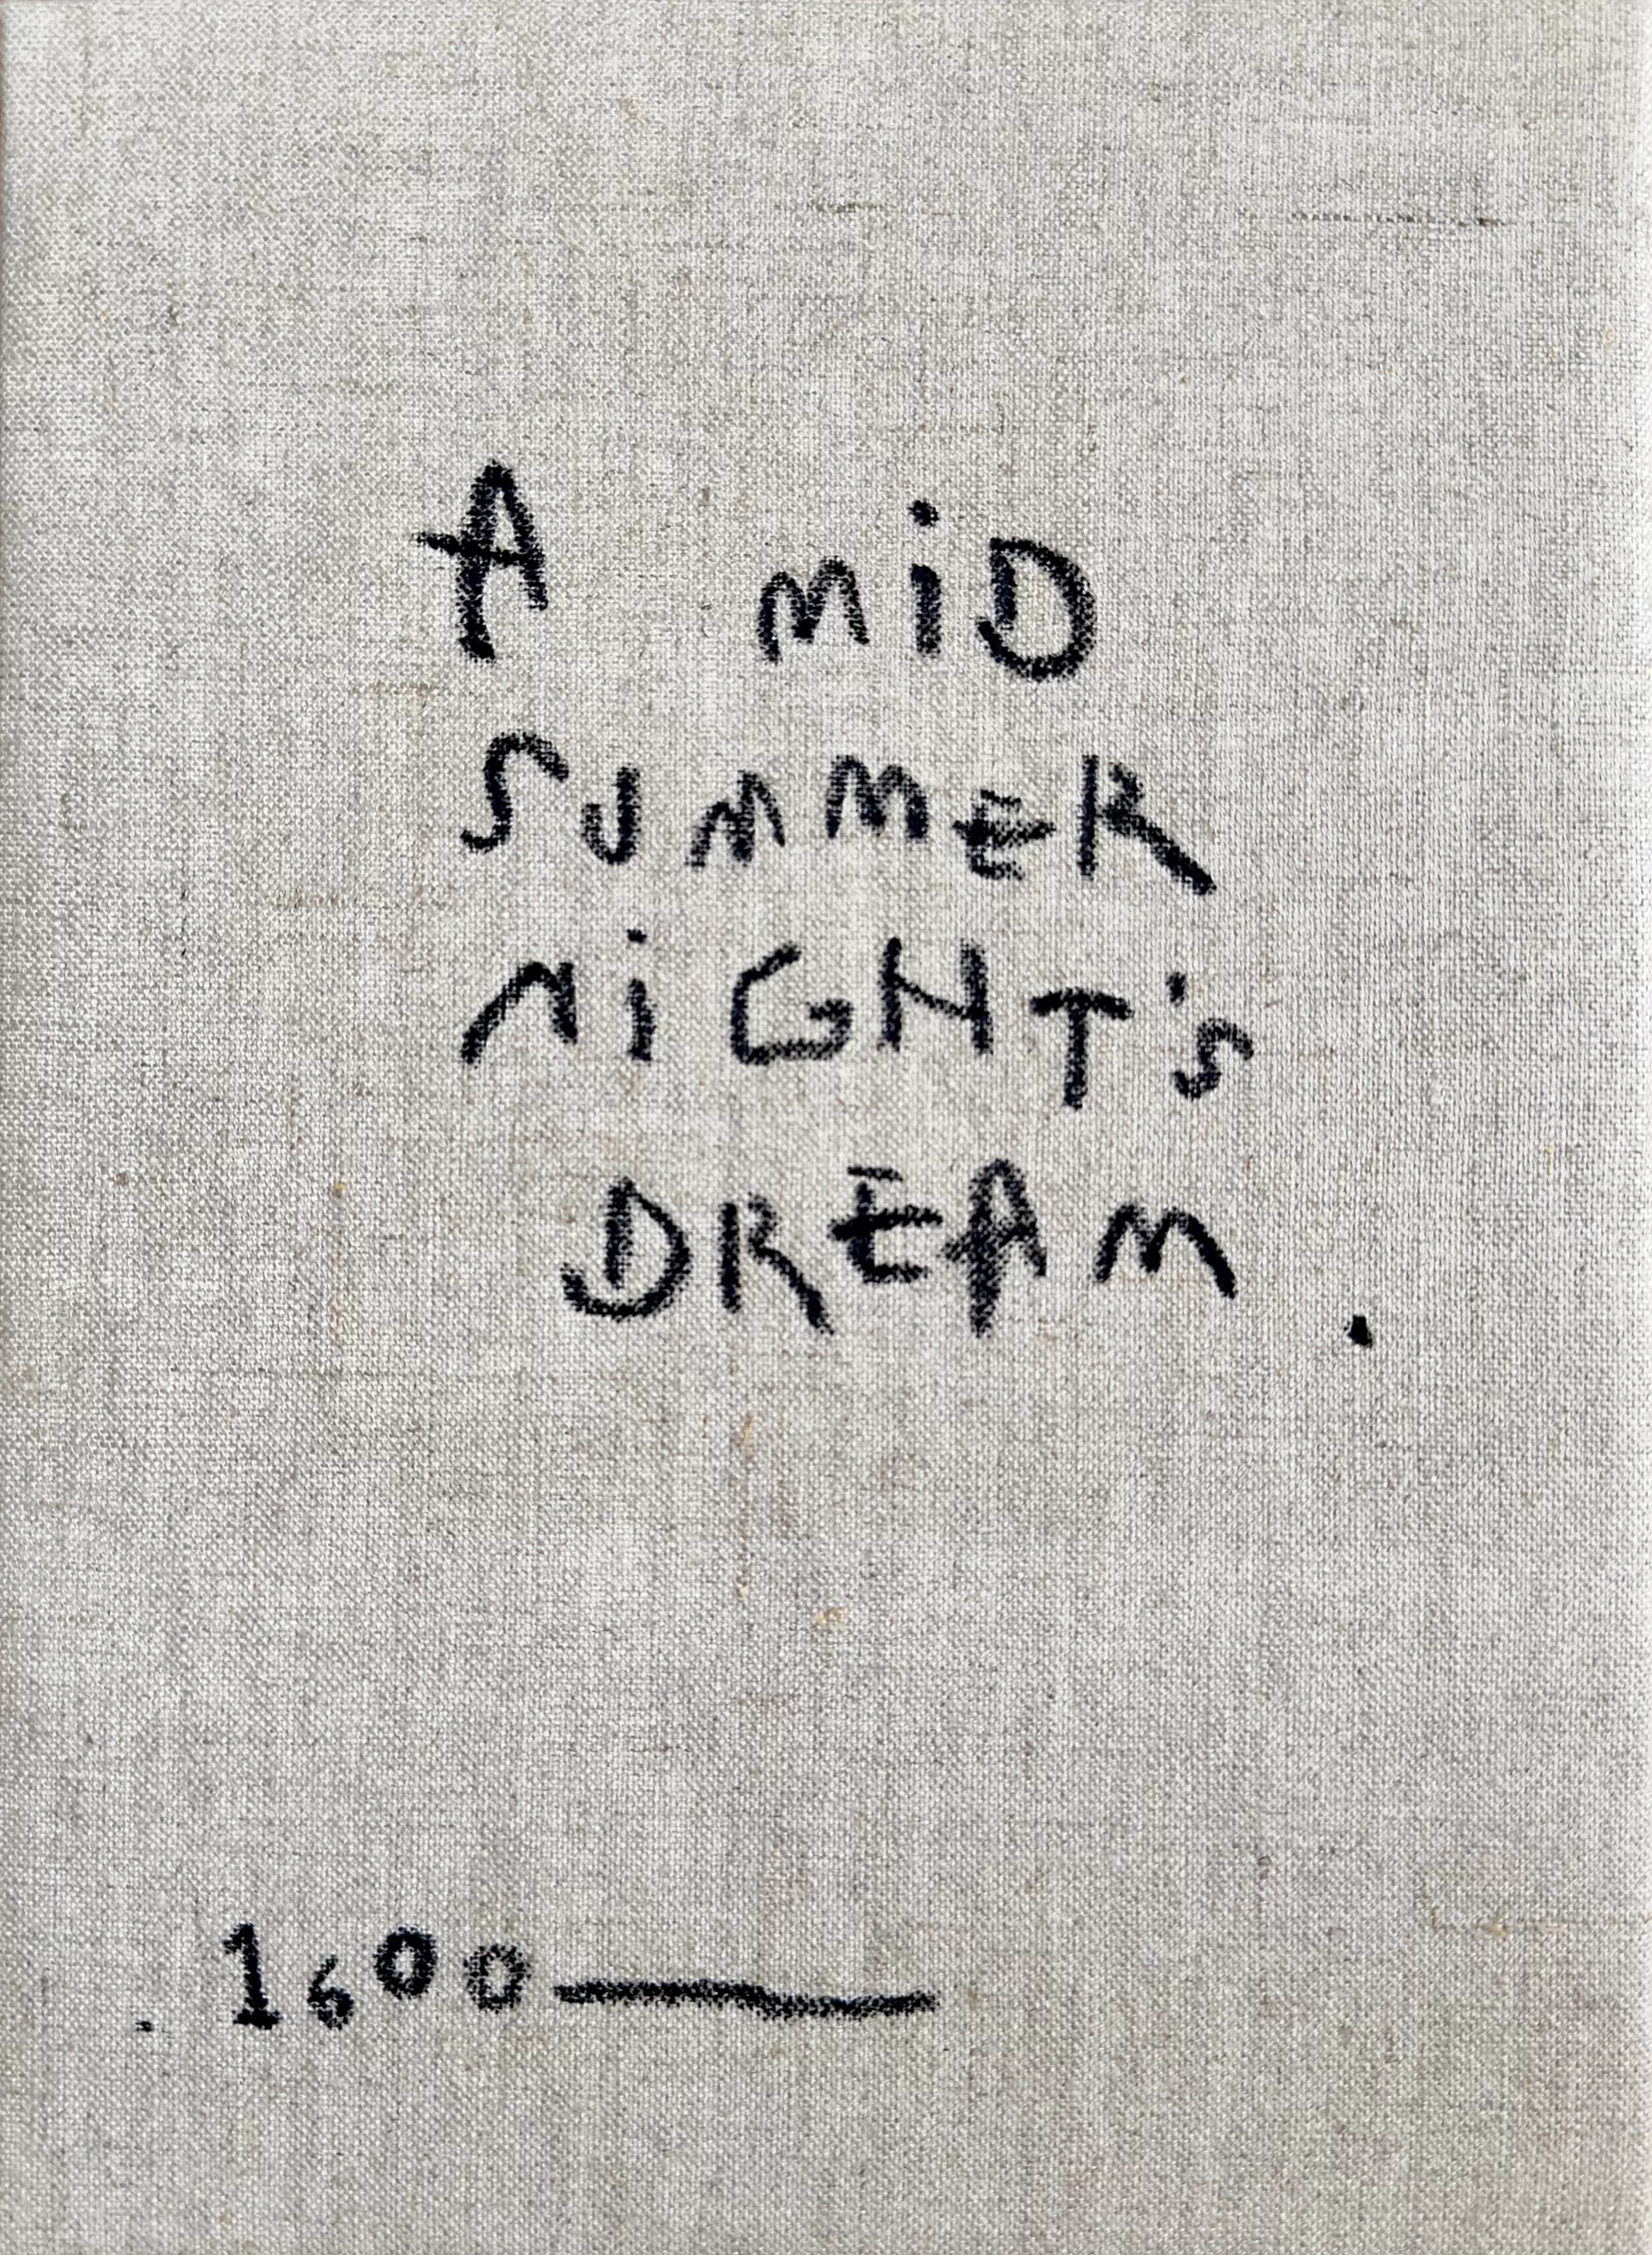 A MiD
SUMMER
NiGHT's
DREAM.
.1600—